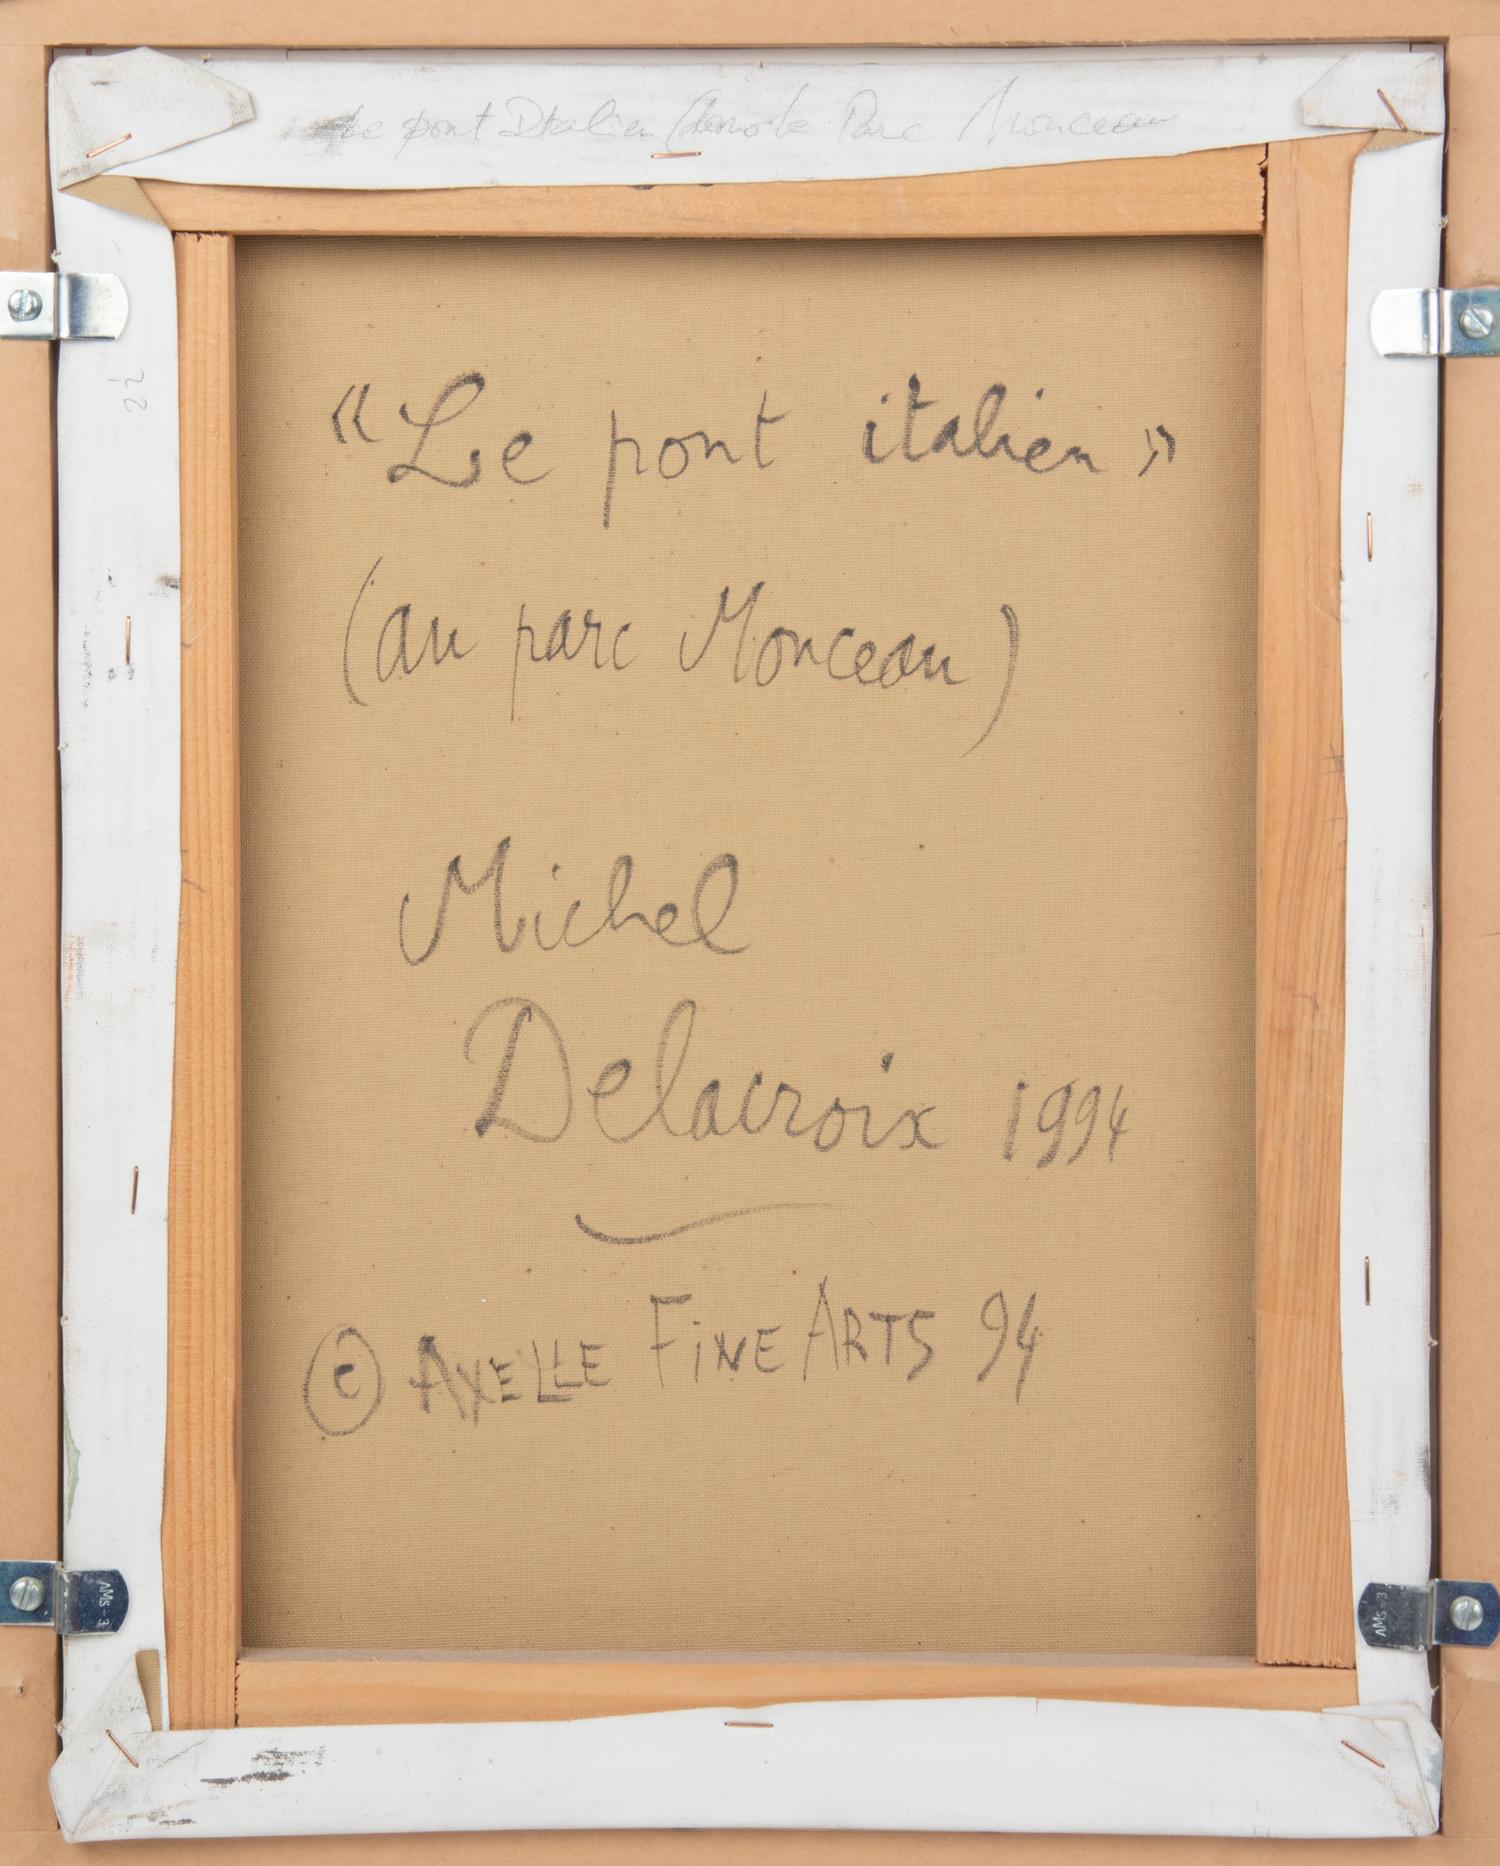 Le pont Italien dans le Parc Monceau
« Le pont italien »
(au parc Monceau)
Michel
Delacroix 1994
© AXELLE FINE ARTS 94
22
AMS-3
AMS-3